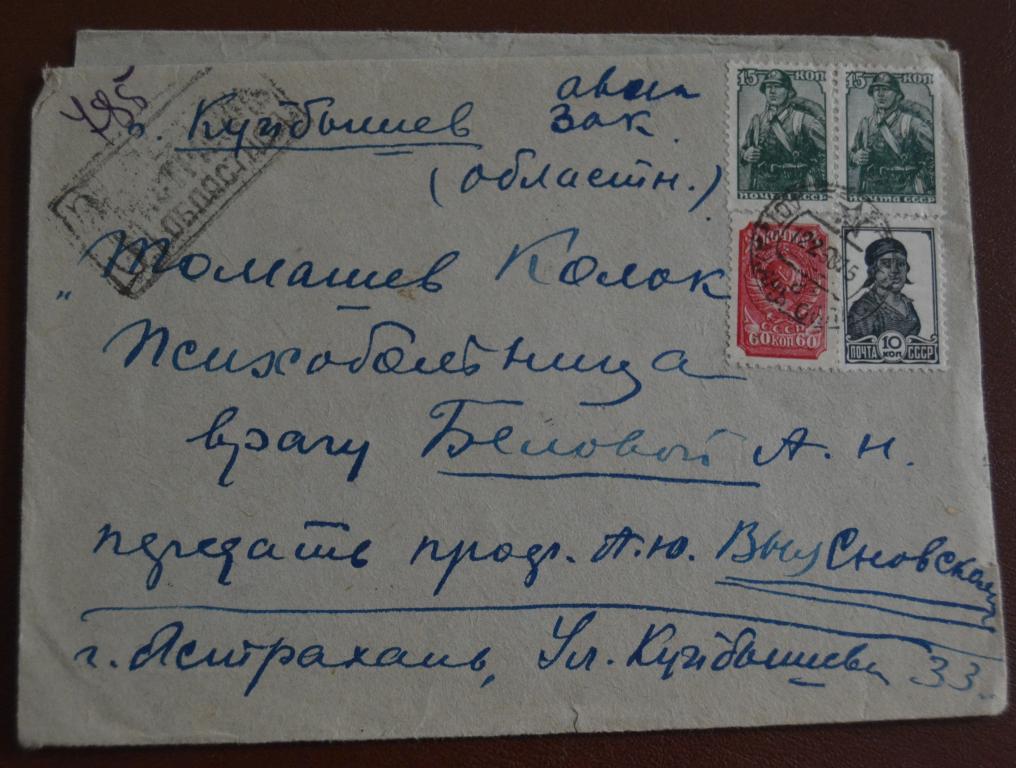 785
авиа
г. Куйбышев Зак.
(областн.)
15 КОП
15 КОП
ПОЧТА СССР
ПОЧТА СССР
Томашев Колок
СССР
60 КОП 60
ПОЧТА 10 КОП СССР
Психобольница
врачу Беловой А. Н.
передать проф. А. Ю. Выясновской
г. Астрахань, Ул. Куйбышева 33.